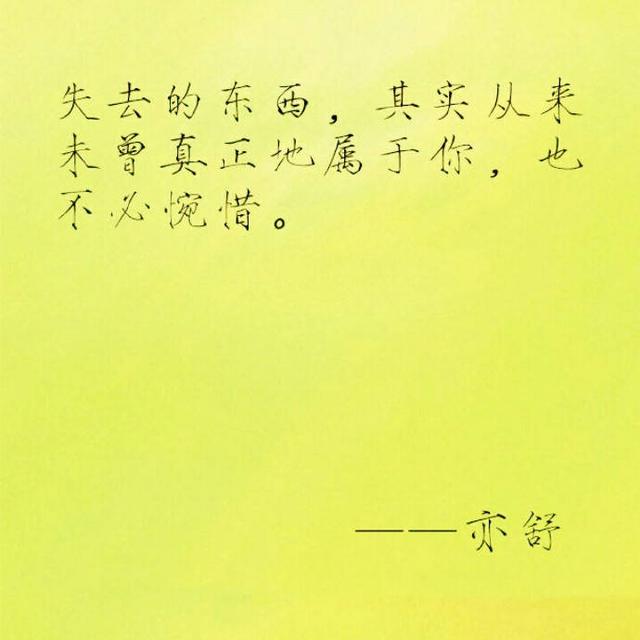 失去的东西，其实从来
未曾真正地属于你，也
不必惋惜。
——亦舒